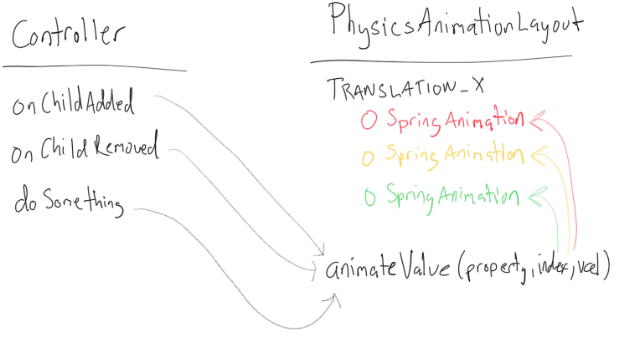 Controller
onChildAdded
onChildRemoved
doSomething
PhysicsAnimationLayout
TRANSLATION_X
O SpringAnimation
O SpringAnimation
O SpringAnimation
animateValue (property, index, vel)